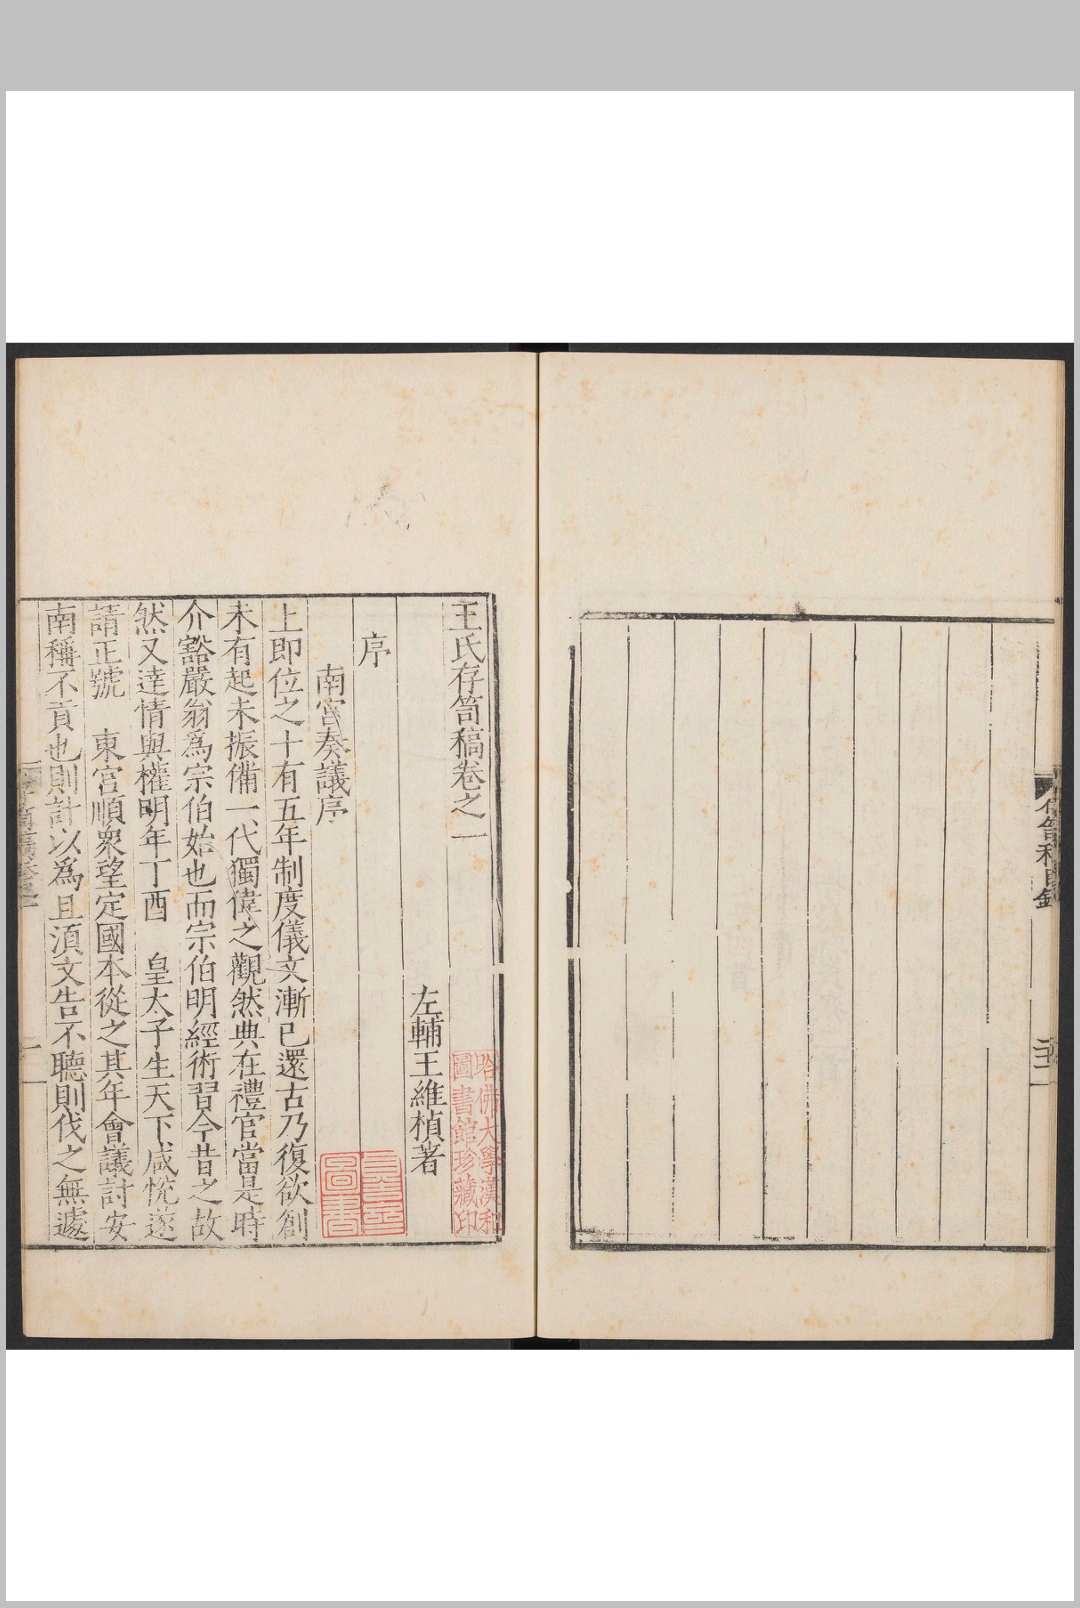 存笥稿目錄
二十二
王氏存笥稿卷之一
左輔王維楨著
序
南宮奏議序
上即位之十有五年制度儀文漸已還古乃復欲創
未有起未振備一代獨偉之觀然典在禮官當是時
介谿嚴翁爲宗伯始也而宗伯明經術習今昔之故
然又達情與權明年丁酉 皇太子生天下咸悅遂
請正號 東宮順衆望定國本從之其年會議討安
南稱不貢也則計以爲且須文告不聽則伐之無遽
哈佛大學漢和
圖書館珍藏印
圖書